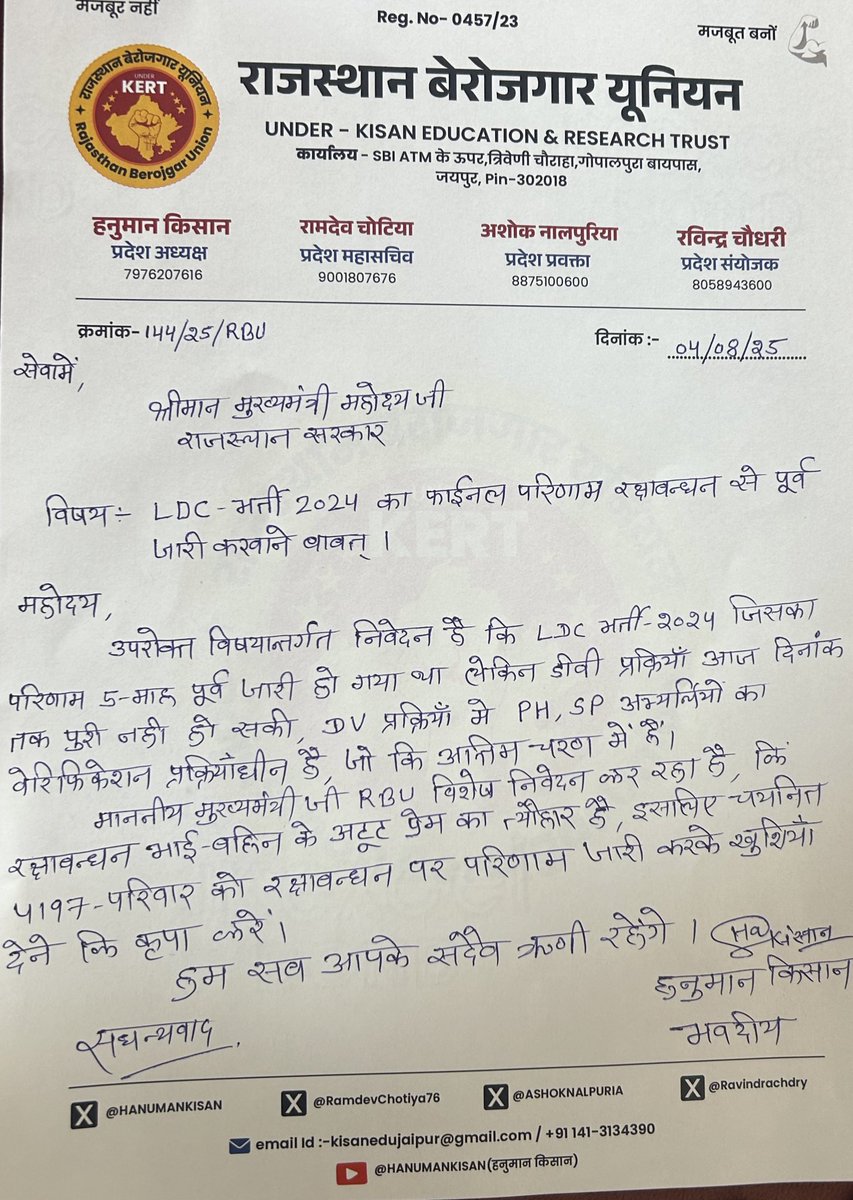 मजबूर नहीं
Reg. No- 0457/23
मजबूत बनों
राजस्थान बेरोजगार यूनियन
UNDER
KERT
Rajasthan Berojgar Union
राजस्थान बेरोजगार यूनियन
UNDER - KISAN EDUCATION & RESEARCH TRUST
कार्यालय - SBI ATM के ऊपर,त्रिवेणी चौराहा,गोपालपुरा बायपास,
जयपुर, Pin-302018
हनुमान किसान
प्रदेश अध्यक्ष
7976207616
रामदेव चोटिया
प्रदेश महासचिव
9001807676
अशोक नालपुरिया
प्रदेश प्रवक्ता
8875100600
रविन्द्र चौधरी
प्रदेश संयोजक
8058943600
क्रमांक- 144/25/RBU
दिनांक :- 04/08/25
सेवामें,
श्रीमान मुख्यमंत्री महोदय जी
राजस्थान सरकार
विषय:- LDC-भर्ती 2024 का फाईनल परिणाम रक्षाबन्धन से पूर्व
जारी करवाने बाबत् ।
महोदय,
उपरोक्त विषयान्तर्गत निवेदन है कि LDC भर्ती-2024 जिसका
परिणाम 5-माह पूर्व जारी हो गया था लेकिन डीवी प्रक्रियाँ आज दिनांक
तक पुरी नही हो सकी, DV प्रक्रियाँ मे PH, SP अभ्यर्थियों का
वेरिफिकेशन प्रक्रियाँधीन है, जो कि अन्तिम चरण में हैं।
माननीय मुख्यमंत्री जी RBU विशेष निवेदन कर रहा है, कि
रक्षाबन्धन भाई-बहिन के अटूट प्रेम का त्यौहार है, इसलिए चयनित
4197-परिवार को रक्षाबन्धन पर परिणाम जारी करके खुशियाँ
देने कि कृपा करें।
हम सब आपके सदैव ऋणी रहेंगे ।
हनुमान किसान
सधन्यवाद .
भवदीय
@HANUMANKISAN
@RamdevChotiya76
@ASHOKNALPURIA
@Ravindrachdry
email Id :-kisanedujaipur@gmail.com / +91 141-3134390
@HANUMANKISAN(हनुमान किसान)